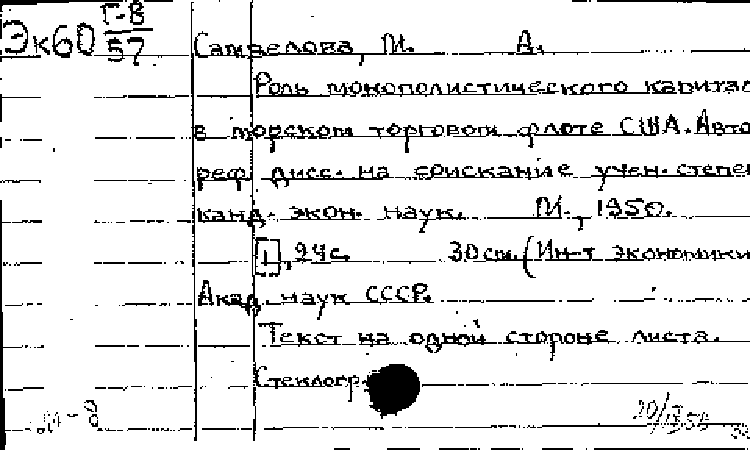 Эк60 Г-8
57
Самвелова, М. А.
Роль монополистического капитал
в морском торговом флоте США. Авто
реф. дисс. на соискание учен. степен
канд. экон. наук. М., 1950.
[1], 24с. 30см. (Ин-т экономики
Акад. наук СССР.
Текст на одной стороне листа.
Стеклогр.